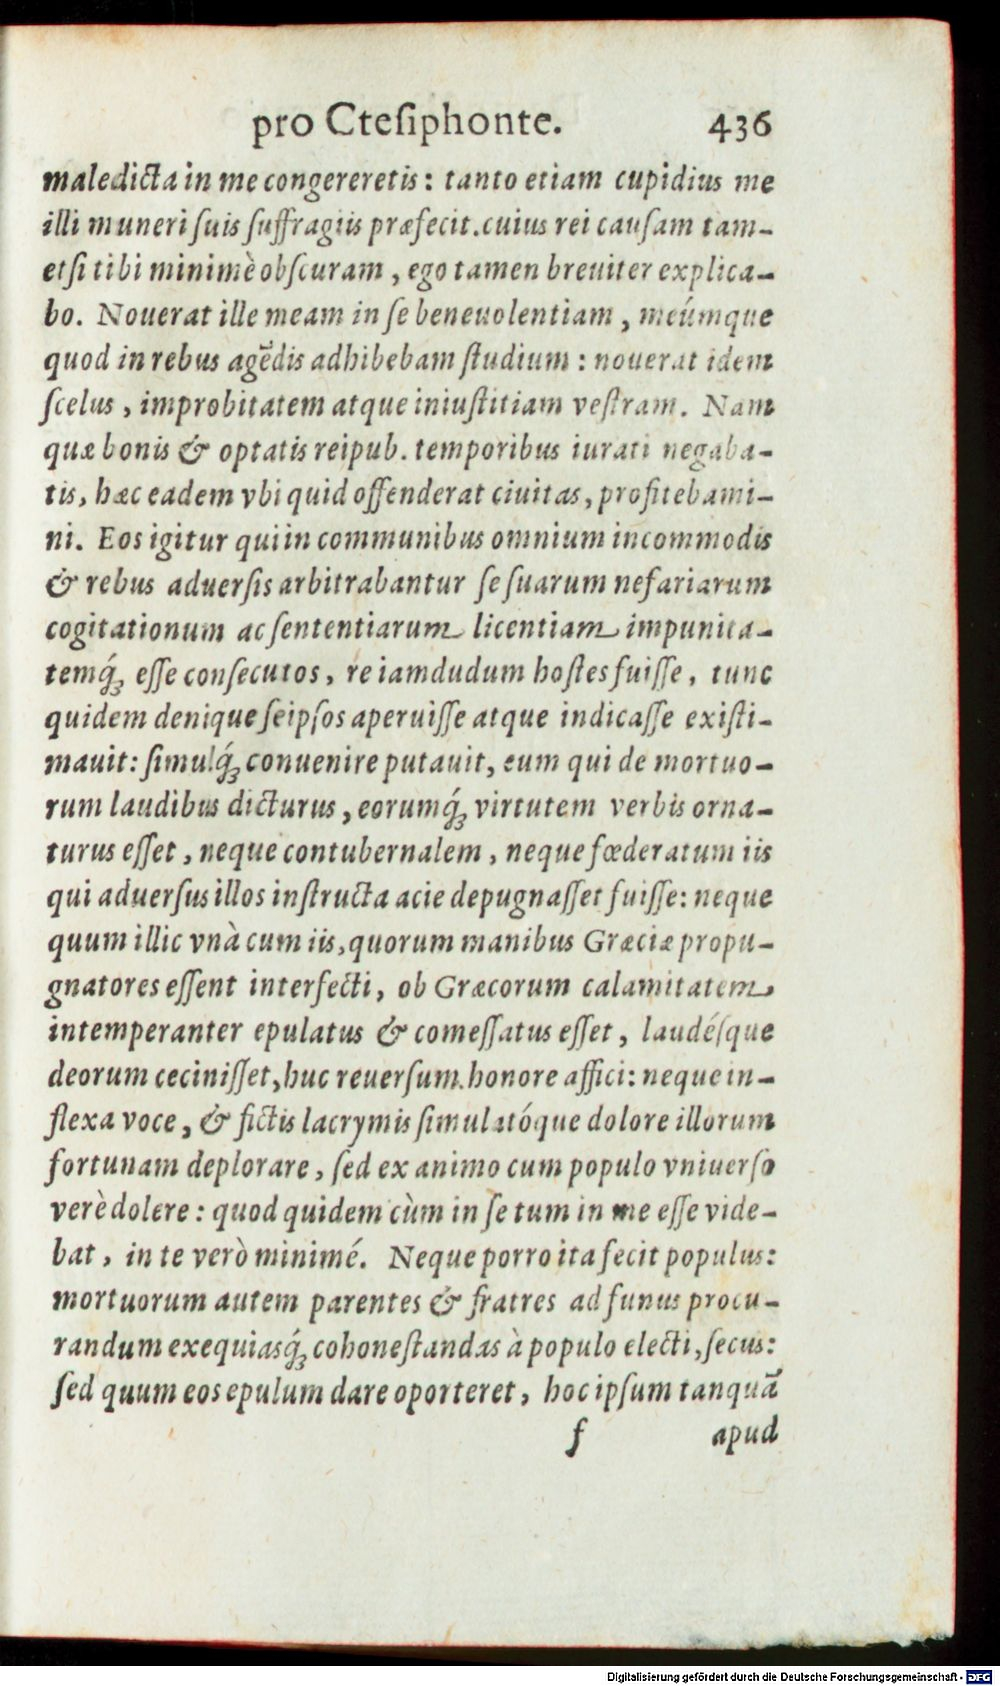 pro Cteſiphonte. 436
maledicta in me congereretis: tanto etiam cupidius me
illi muneri ſuis ſuffragiis præfecit. cuius rei cauſam tam-
etſi tibi minimè obſcuram, ego tamen breuiter explica-
bo. Nouerat ille meam in ſe beneuolentiam, meúmque
quod in rebus agẽdis adhibebam ſtudium: nouerat idem
ſcelus, improbitatem atque iniuſtitiam veſtram. Nam
quæ bonis & optatis reipub. temporibus iurati negaba-
tis, hæc eadem vbi quid offenderat ciuitas, profitebami-
ni. Eos igitur qui in communibus omnium incommodis
& rebus aduerſis arbitrabantur ſe ſuarum nefariarum
cogitationum ac ſententiarum licentiam impunita-
temq́ꝫ eſſe conſecutos, re iamdudum hoſtes fuiſſe, tunc
quidem denique ſeipſos aperuiſſe atque indicaſſe exiſti-
mauit: ſimulq́ꝫ conuenire putauit, eum qui de mortuo-
rum laudibus dicturus, eorumq́ꝫ virtutem verbis orna-
turus eſſet, neque contubernalem, neque fœderatum iis
qui aduerſus illos inſtructa acie depugnaſſet fuiſſe: neque
quum illic vnà cum iis, quorum manibus Græciæ propu-
gnatores eſſent interfecti, ob Græcorum calamitatem
intemperanter epulatus & comeſſatus eſſet, laudéſque
deorum ceciniſſet, huc reuerſum honore affici: neque in-
flexa voce, & fictis lacrymis ſimulatóque dolore illorum
fortunam deplorare, ſed ex animo cum populo vniuerſo
verè dolere: quod quidem cùm in ſe tum in me eſſe vide-
bat, in te verò minimé. Neque porro ita fecit populus:
mortuorum autem parentes & fratres ad funus procu-
randum exequiasq́ꝫ cohoneſtandas à populo electi, ſecus:
ſed quum eos epulum dare oporteret, hoc ipſum tanquã
f apud
Digitalisierung gefördert durch die Deutsche Forschungsgemeinschaft - DFG